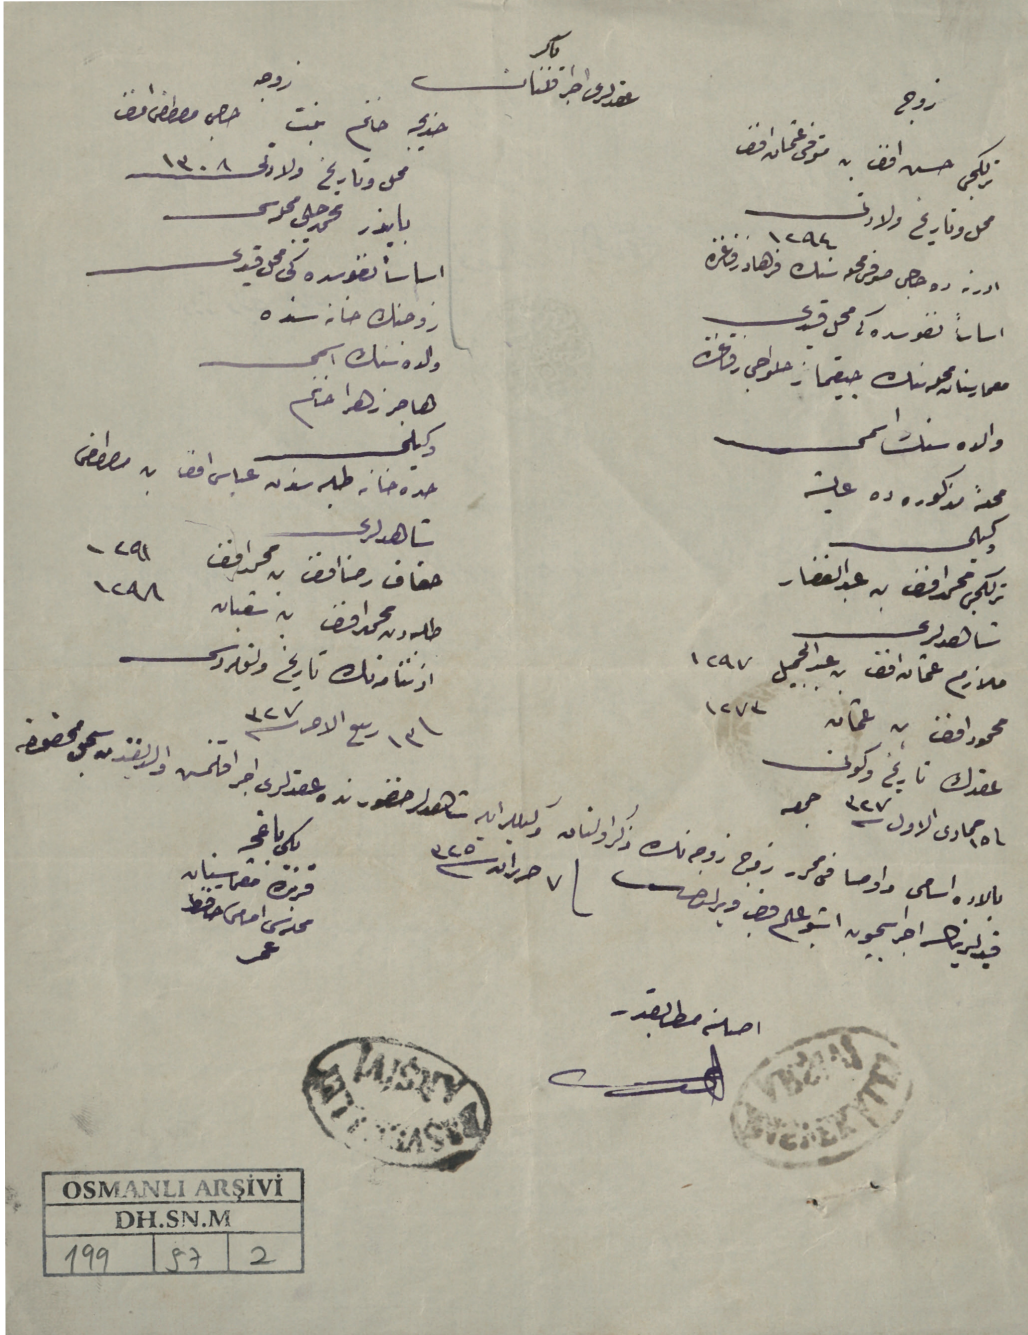 عقدلری اجرا قلنان
زوج
تربكجی حسین افندی بن متوفی عثمان افندی
محل و تاریخ ولادتی
١٢٩٤
ادرنه ده حاجی صوفی محله سنك فرهاد زقاغنده
اساساً نفوسده كی محل قیدی
معمار سنان محله سنك چیقماز حلواجی زقاغنده
والده سنك اسمی
محلهٔ مذكوره ده عایشه
وكیلی
تربكجی محمد افندی بن عبد الغفار
شاهدلری
ملازم عثمان افندی بن عبد الجمیل ١٢٩٧
محمود افندی بن عثمان ١٢٧٣
عقدك تاریخ وكونی
١٥ جمادی الاول ٣٢٧ جمعه
زوجه
خدیجه خانم بنت حاجی مصطفی افندی
محل و تاریخ ولادتی ١٣٠٨
بایزید محله سی
اساساً نفوسده كی محل قیدی
زوجنك خانه سنده
والده سنك اسمی
هاجر زهرا خانم
وكیلی
خانه طلبه سندن عباس افندی بن مصطفی
شاهدلری
خفاف رضا افندی بن محمد افندی ١٢٩١
طلبه دن محمد افندی بن شعبان ١٢٩٨
اذننامه نك تاریخ و نومروسی
١٣ ربیع الاخر ٣٢٧
بالاده اسامی و اوصافی محرر زوج زوجه نك ذكر اولنان وكیللر ایله شاهدلر حضورنده عقدلری اجرا قلنمش و اولبابده سجل مخصوصنه
قیدلرینك اجراسیچون اشبو علم و خبر ویرلدی
٧ حزیران ٣٢٥
یكی باغچه
قربنده معمار سنان
محله سی امامی حافظ
عمر
اصلنه مطابقدر
OSMANLI ARŞİVİ
DH.SN.M
199 97 2